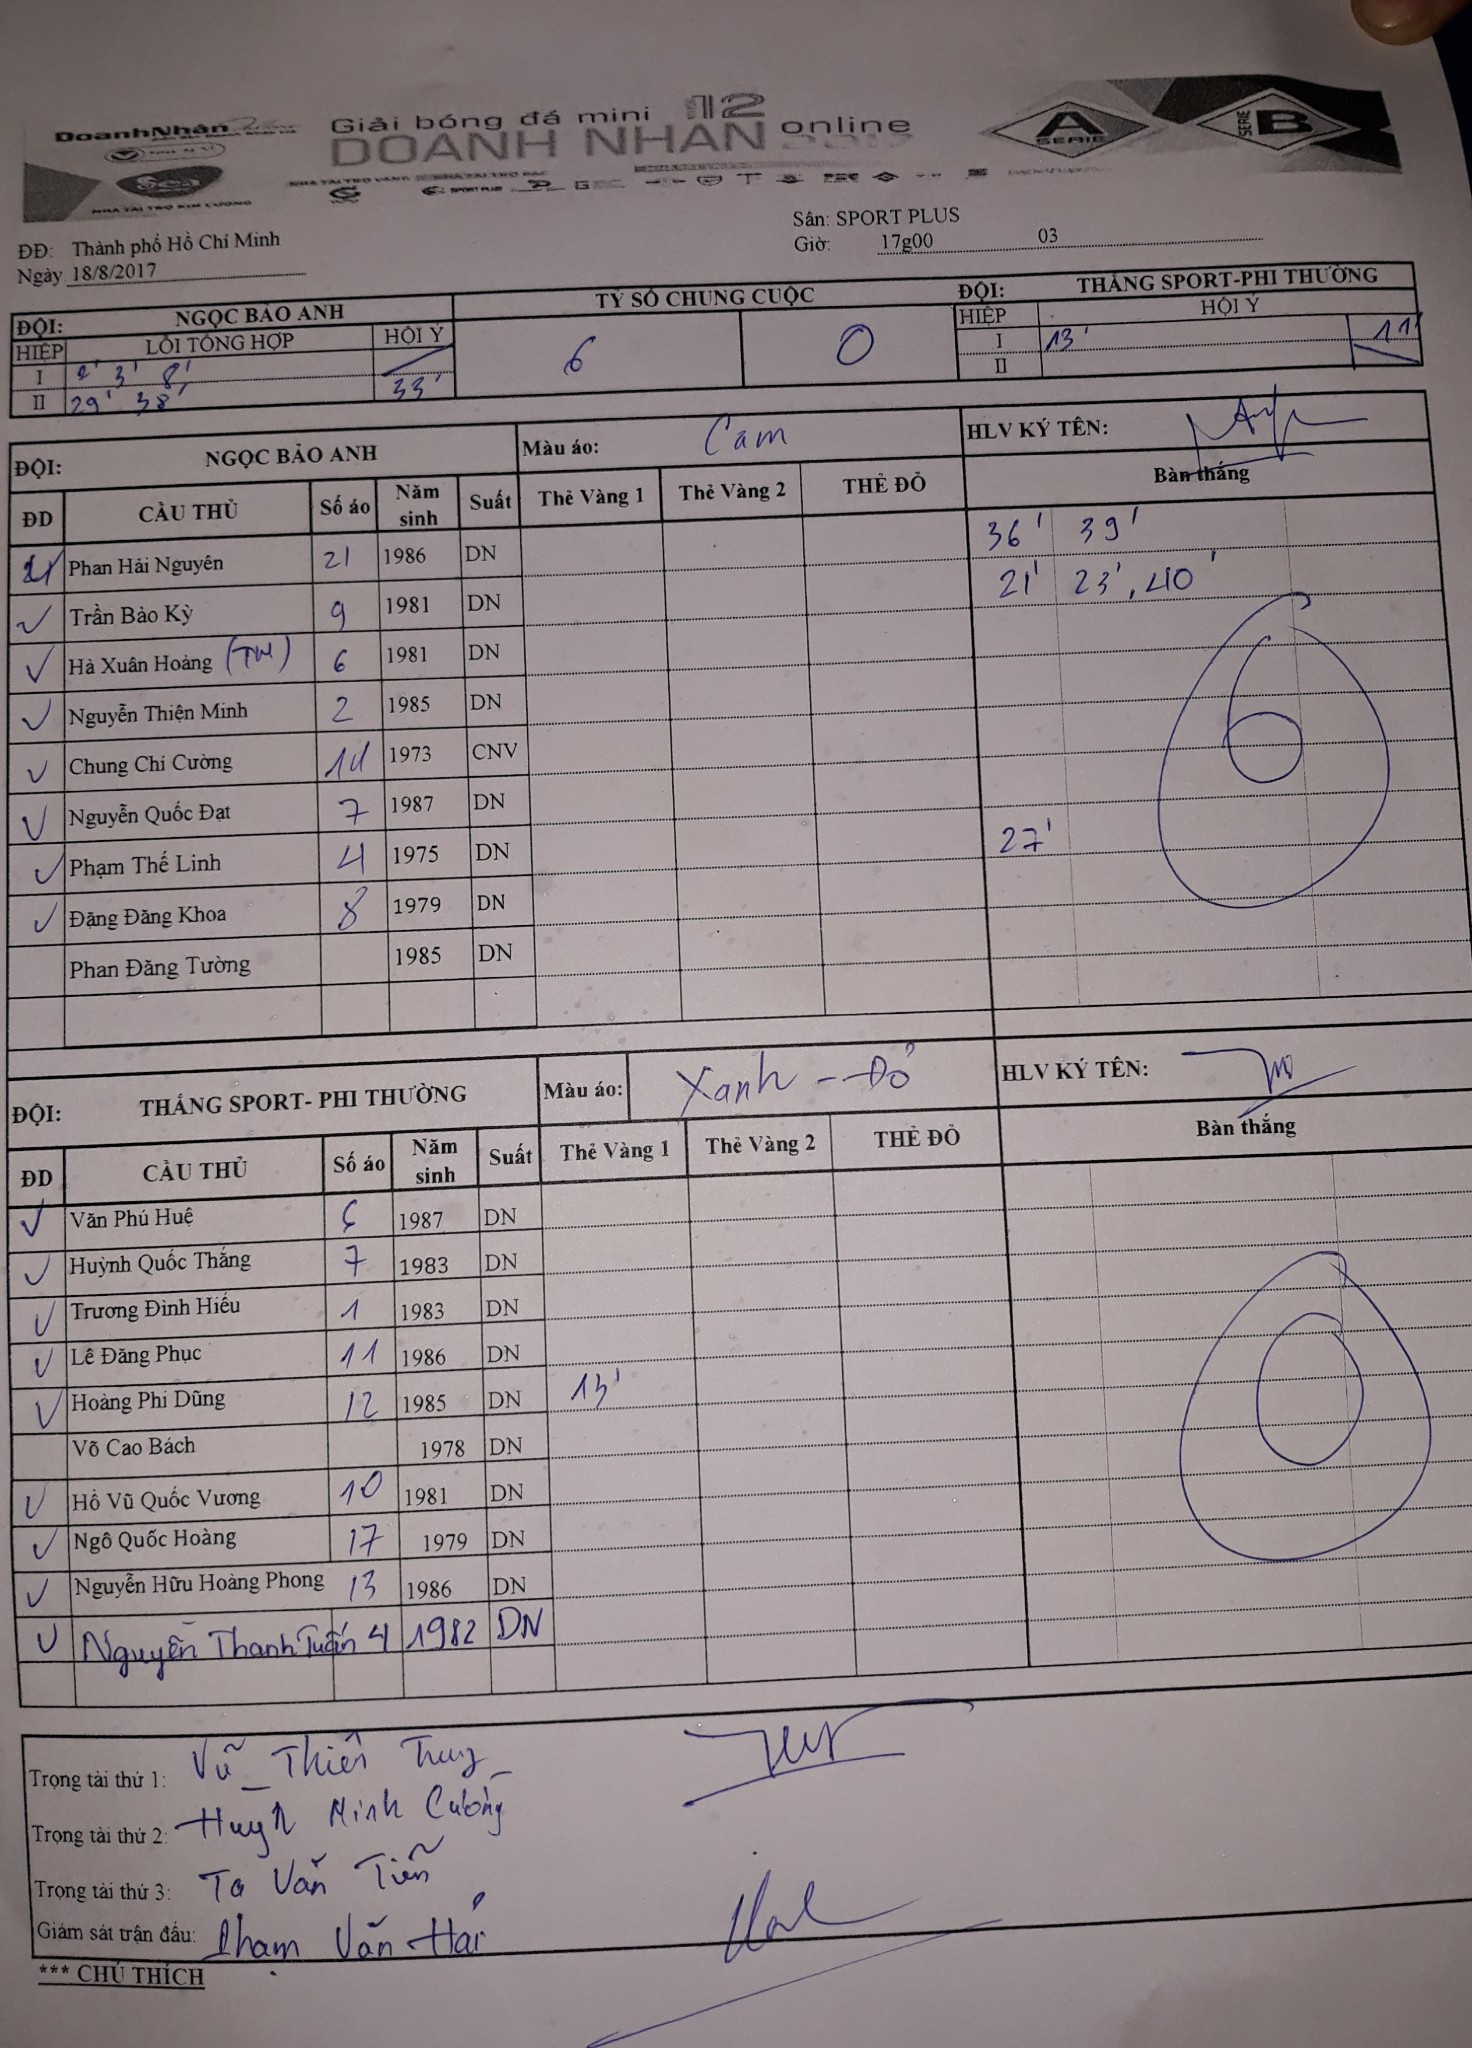 DoanhNhân
Giải bóng đá mini 12
DOANH NHÂN online
A SERIE
SERIE B
NHÀ TÀI TRỢ KIM CƯƠNG
SPORT PLUS
ĐĐ: Thành phố Hồ Chí Minh
Sân: SPORT PLUS
Ngày 18/8/2017
Giờ: 17g00 03
ĐỘI: NGỌC BẢO ANH TỶ SỐ CHUNG CUỘC ĐỘI: THẮNG SPORT-PHI THƯỜNG
HIỆP LỖI TỔNG HỢP HỘI Ý 6 0 HIỆP HỘI Ý
I 2' 3' 8' I 13' 11'
II 29' 38' 33' II
ĐỘI: NGỌC BẢO ANH Màu áo: Cam HLV KÝ TÊN:
ĐD CẦU THỦ Số áo Năm sinh Suất Thẻ Vàng 1 Thẻ Vàng 2 THẺ ĐỎ Bàn thắng
Phan Hải Nguyên 21 1986 DN 36' 39'
✓ Trần Bảo Kỳ 9 1981 DN 21' 23', 40'
✓ Hà Xuân Hoàng (TM) 6 1981 DN
✓ Nguyễn Thiện Minh 2 1985 DN
✓ Chung Chí Cường 14 1973 CNV
✓ Nguyễn Quốc Đạt 7 1987 DN
✓ Phạm Thế Linh 4 1975 DN 27'
✓ Đặng Đăng Khoa 8 1979 DN
Phan Đăng Tường 1985 DN
6
ĐỘI: THẮNG SPORT- PHI THƯỜNG Màu áo: Xanh - Đỏ HLV KÝ TÊN:
ĐD CẦU THỦ Số áo Năm sinh Suất Thẻ Vàng 1 Thẻ Vàng 2 THẺ ĐỎ Bàn thắng
✓ Văn Phú Huệ 6 1987 DN
✓ Huỳnh Quốc Thắng 7 1983 DN
✓ Trương Đình Hiếu 1 1983 DN
✓ Lê Đăng Phục 11 1986 DN
✓ Hoàng Phi Dũng 12 1985 DN 13'
Võ Cao Bách 1978 DN
✓ Hồ Vũ Quốc Vương 10 1981 DN
✓ Ngô Quốc Hoàng 17 1979 DN
✓ Nguyễn Hữu Hoàng Phong 13 1986 DN
✓ Nguyễn Thanh Tuấn 4 1982 DN
0
Trọng tài thứ 1: Vũ Thiên Trung
Trọng tài thứ 2: Huỳnh Minh Cường
Trọng tài thứ 3: Tạ Văn Tiến
Giám sát trận đấu: Phạm Văn Hải
*** CHÚ THÍCH